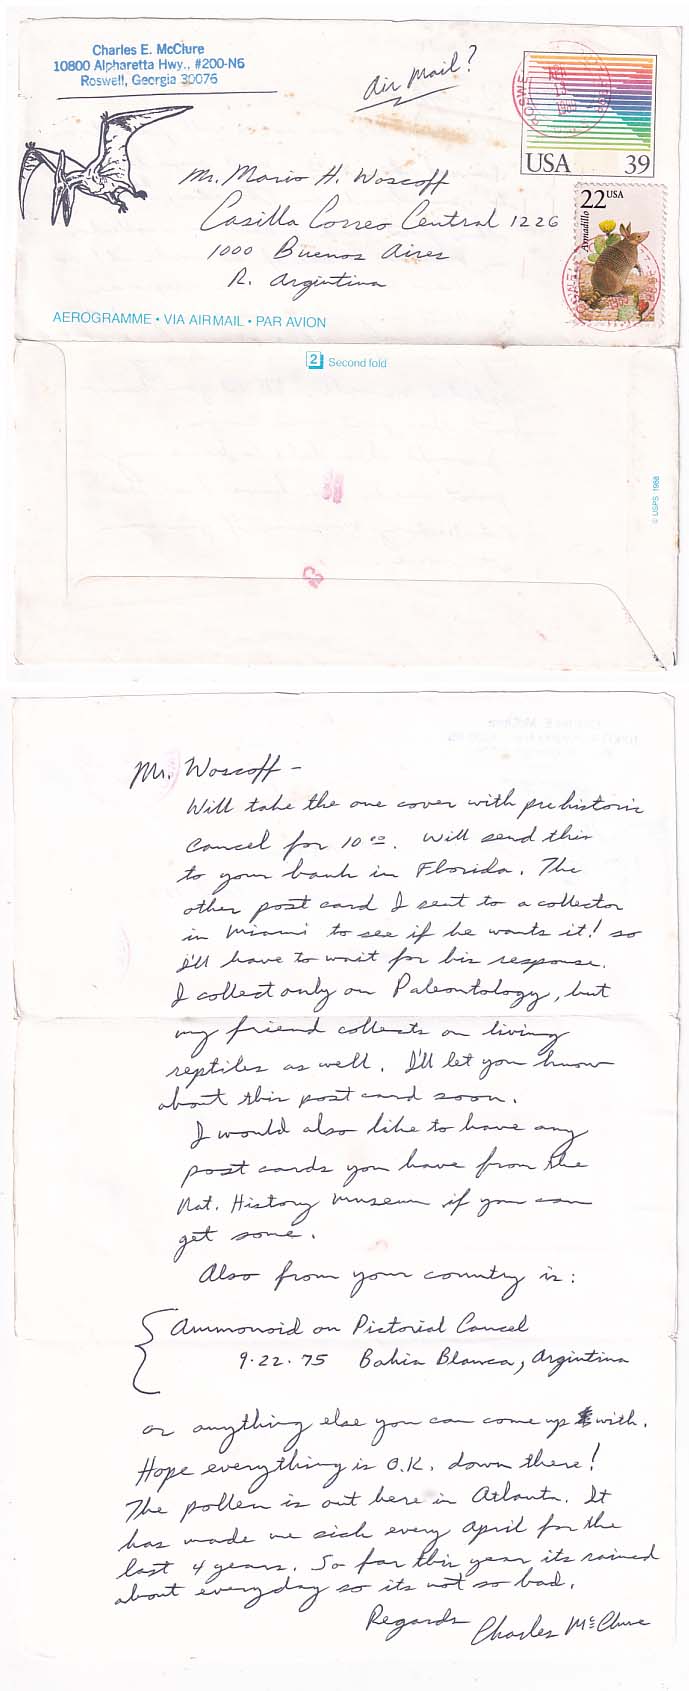 Charles E. McClure
10800 Alpharetta Hwy., #200-N6
Roswell, Georgia 30076
Air Mail?
USA 39
22 USA
Armadillo
Mr. Mario H. Woscoff
Casilla Correo Central 1226
1000 Buenos Aires
R. Argintina
AEROGRAMME • VIA AIRMAIL • PAR AVION
2 Second fold
© USPS 1988
Mr. Woscoff –
Will take the one cover with prehistoric
cancel for 10 00. Will send this
to your bank in Florida. The
other post card I sent to a collector
in Miami to see if he wants it! so
I'll have to wait for his response.
I collect only on Paleontology, but
my friend collects on living
reptiles as well. I'll let you know
about this post card soon.
I would also like to have any
post cards you have from the
Nat. History Museum if you can
get some.
Also from your country is:
Ammonoid on Pictorial Cancel
9.22.75 Bahia Blanca, Argintina
or anything else you can come up with.
Hope everything is O.K. down there!
The pollen is out here in Atlanta. It
has made me sick every April for the
last 4 years. So far this year its rained
about everyday so its not so bad.
Regards Charles McClure